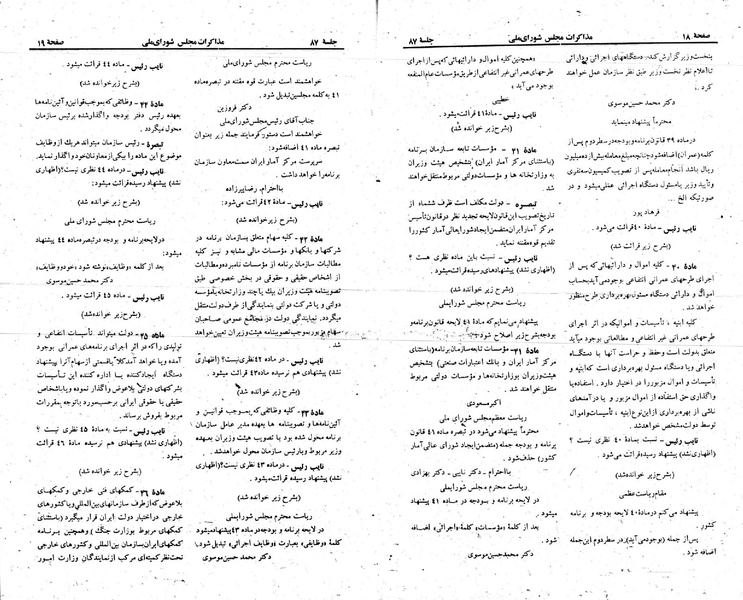 صفحهٔ ۱۸
مذاکرات مجلس شورای‌ملی
جلسهٔ ۸۷
بنخست وزیر گزارش کند، دستگاههای اجرائی و دارائی
تا اعلام نظر نخست وزیر طبق نظر سازمان عمل خواهند
کرد.
دکتر محمد حسین موسوی
محترماً پیشنهاد مینماید
در ماده ۳۹ قانون برنامه و بودجه در سطر دوم پس از
کلمه (عمران) اضافه شود چنانچه مبلغ معامله بیش از ده میلیون
ریال باشد انجام معامله پس از تصویب کمیسیون سه نفری
و تأیید وزیر یا مسئول دستگاه اجرائی عملی میشود و در
صورتیکه الخ ...
فرهاد پور
نایب رئیس - ماده ۴۰ قرائت می‌شود.
(بشرح زیر قرائت شد)
مادهٔ ۴۰ - کلیه اموال و دارائیهائی که پس از
اجرای طرحهای عمرانی انتفاعی بوجود می‌آید بحساب
اموال و دارائی دستگاه مسئول بهره‌برداری طرح منظور
خواهد شد.
کلیه ابنیه ، تأسیسات و اموالیکه در اثر اجرای
طرحهای عمرانی غیر انتفاعی و مطالعاتی بوجود میآید
متعلق بدولت است و حفظ و حراست آنها با دستگاه
اجرائی و یا دستگاه مسئول بهره‌برداری است که ابنیه و
تأسیسات و اموال مزبور را در اختیار دارد. استفاده یا
واگذاری حق استفاده از اموال مزبور و یا درآمدهای
ناشی از بهره‌برداری از این نوع ابنیه ، تأسیسات و اموال
توسط دولت مشخص خواهد شد.
نایب رئیس - نسبت بماده ۴۰ نظری نیست ؟
(اظهاری نشد) پیشنهاد رسیده قرائت می‌شود.
(بشرح زیر خوانده شد)
مقام ریاست عظمی
پیشنهاد می‌کنم در ماده ۴۰ لایحه بودجه و برنامه
کشور.
پس از جمله (بوجود می‌آید) در سطر دوم این جمله
اضافه شود .
«همچنین کلیه اموال و دارائیهائی که پس از اجرای
طرحهای عمرانی غیر انتفاعی از طریق مؤسسات عام‌المنفعه
بوجود می‌آید »
خطیبی
نایب رئیس - ماده ۴۱ قرائت میشود .
(بشرح زیر خوانده شد)
مادهٔ ۴۱ - مؤسسات تابعه سازمان برنامه
(باستثنای مرکز آمار ایران) بتشخیص هیئت وزیران
به وزارتخانه ها و مؤسسات دولتی مربوط منتقل خواهند
شد.
تبصره - دولت مکلف است ظرف ششماه از
تاریخ تصویب این قانون لایحه تجدید نظر در قانون تأسیس
مرکز آمار ایران متضمن ایجاد شورایعالی آمار کشور را
تقدیم قوه مقننه نماید.
نایب رئیس - نسبت باین ماده نظری هست ؟
(اظهاری نشد) پیشنهادهای رسیده قرائت میشود.
(بشرح زیر خوانده شد)
ریاست محترم مجلس شورایملی
پیشنهاد مینمایم که مادهٔ ۴۱ لایحه قانون برنامه و
بودجه بشرح زیر اصلاح شود :
مادهٔ ۴۱ - مؤسسات تابعه سازمان برنامه (باستثنای
مرکز آمار ایران و بانک اعتبارات صنعتی) بتشخیص
هیئت وزیران بوزارتخانه‌ها و مؤسسات دولتی مربوط
منتقل خواهند شد.
اکبر مسعودی
ریاست معظم مجلس شورای ملی
محترماً پیشنهاد می‌شود در تبصره ماده ۴۱ قانون
برنامه و بودجه جمله (متضمن ایجاد شورای عالی آمار
کشور) حذف شود .
با احترام - دکتر نایبی - دکتر بهزادی
ریاست محترم مجلس شورایملی
در لایحه برنامه و بودجه در ماده ۴۱ پیشنهاد
میشود.
بعد از کلمه (مؤسسات) کلمهٔ «اجرائی» اضافه
شود.
دکتر محمدحسین موسوی
جلسهٔ ۸۷
مذاکرات مجلس شورای‌ملی
صفحهٔ ۱۹
ریاست محترم مجلس شورای ملی
خواهشمند است عبارت قوه مقننه در تبصره ماده
۴۱ به کلمه مجلسین تبدیل شود.
دکتر فروزین
جناب آقای رئیس مجلس شورای‌ملی
خواهشمند است دستور فرمایند جمله زیر بعنوان
تبصره ماده ۴۱ اضافه شود:
سرپرست مرکز آمار ایران سمت معاون سازمان
برنامه را خواهد داشت.
با احترام، رضا پیرزاده
نایب رئیس - ماده ۴۲ قرائت می‌شود:
(بشرح زیر خوانده شد)
مادهٔ ۴۲ - کلیه سهام متعلق بسازمان برنامه در
شرکتها و بانکها و مؤسسات مالی مشابه و نیز کلیه
مطالبات سازمان برنامه از مؤسسات نامبرده و مطالبات
از اشخاص حقیقی و حقوقی در بخش خصوصی طبق
تصویبنامه هیئت وزیران بیک یا چند وزارتخانه یا مؤسسه
دولتی و یا شرکت دولتی بنمایندگی از طرف دولت منتقل
میگردد. نماینده دولت در مجامع عمومی صاحبان
سهام مزبور بموجب تصویبنامه هیئت وزیران تعیین خواهد
شد.
نایب رئیس - در ماده ۴۲ نظری نیست؟ (اظهاری
نشد) پیشنهادی هم نرسیده ماده ۴۳ قرائت میشود.
(بشرح زیر خوانده شد)
مادهٔ ۴۳ - کلیه وظائفی که بموجب قوانین و
آئین‌نامه‌ها و تصویبنامه ها بعهده مدیر عامل سازمان
برنامه محول شده بود با تصویب هیئت وزیران بعهده
وزیر مربوط و یا رئیس سازمان محول خواهد شد.
نایب رئیس - در ماده ۴۳ نظری نیست؟ (اظهاری
نشد) پیشنهاد رسیده قرائت میشود.
(بشرح زیر خوانده شد)
ریاست محترم مجلس شورایملی
در لایحه برنامه و بودجه در ماده ۴۳ پیشنهاد میشود
کلمهٔ «وظایفی» بعبارت «وظایف اجرائی» تبدیل شود.
دکتر محمد حسین موسوی
نایب رئیس - ماده ۴۴ قرائت میشود .
(بشرح زیر خوانده شد)
مادهٔ ۴۴ - وظائفی که بموجب قوانین و آئین‌نامه‌ها
بعهده رئیس دفتر بودجه واگذار شده برئیس سازمان
محول میگردد .
تبصرهٔ - رئیس سازمان میتواند هر یک از وظایف
موضوع این ماده را بیکی از معاونان خود واگذار نماید.
نایب رئیس - در ماده ۴۴ نظری نیست؟ (اظهاری
نشد) پیشنهاد رسیده قرائت میشود:
(بشرح زیر خوانده شد)
ریاست محترم مجلس شورای ملی
در لایحه برنامه و بودجه در تبصره ماده ۴۴ پیشنهاد
میشود:
بعد از کلمه «وظایف» نوشته شود ، «خود و وظایف»
دکتر محمد حسین موسوی
نایب رئیس - ماده ۴۵ قرائت میشود.
(بشرح زیر خوانده شد)
مادهٔ ۴۵ - دولت میتواند تأسیسات انتفاعی و
تولیدی را که در اثر اجرای برنامه‌های عمرانی بوجود
آمده و یا خواهد آمد کلاً یا قسمتی از سهام آنرا پیشنهاد
دستگاه ایجاد کننده یا اداره کننده این تأسیسات
بشرکتهای دولتی بلاعوض واگذار نموده و یا باشخاص
حقیقی یا حقوقی ایرانی برحسب مورد با توجه بمقررات
مربوط بفروش برساند.
نایب رئیس - نسبت بماده ۴۵ نظری نیست ؟
(اظهاری نشد) پیشنهادی هم نرسیده ماده ۴۶ قرائت
میشود.
(بشرح زیر خوانده شد)
مادهٔ ۴۶ - کمکهای فنی خارجی و کمکهای
بلاعوض که از طرف سازمانهای بین‌المللی و یا کشورهای
خارجی در اختیار دولت ایران قرار میگیرد (باستثنای
کمکهای مربوط بوزارت جنگ) و همچنین برنامه
کمکهای ایران بسازمان بین‌المللی و کشورهای خارجی
تحت نظر کمیته‌ای مرکب از نمایندگان وزارت امور